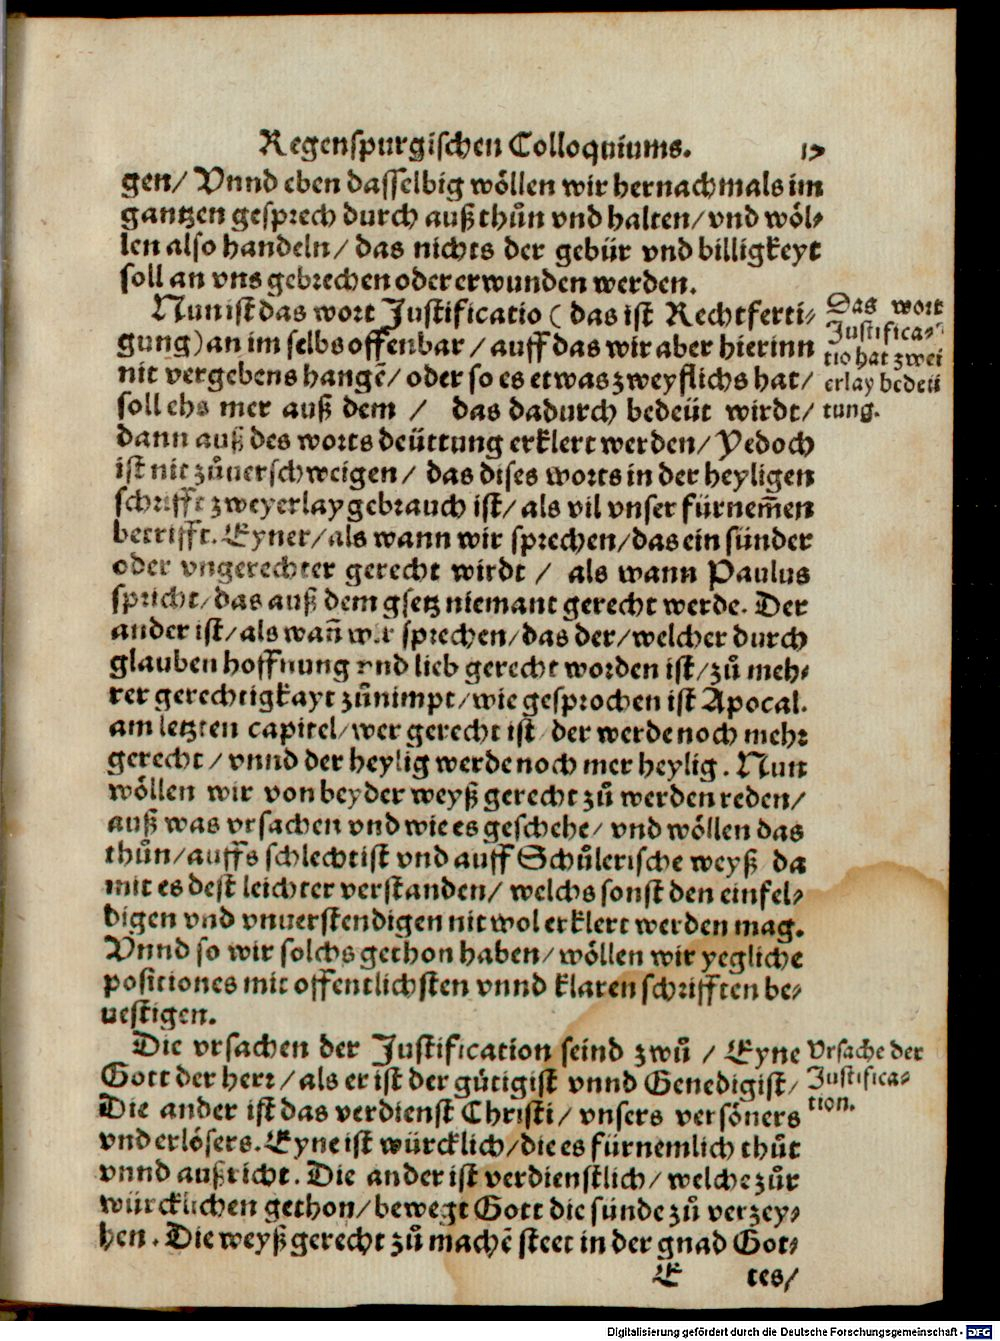 Regenspurgischen Colloquiums. 17
gen/ Vnnd eben dasselbig wöllen wir hernachmals im
gantzen gesprech durch auß thůn vnd halten/ vnd wöl-
len also handeln/ das nichts der gebür vnd billigkeyt
soll an vns gebrechen oder erwunden werden.
Nun ist das wort Justificatio ( das ist Rechtferti-
gung) an im selbs offenbar/ auff das wir aber hierinn
nit vergebens hangē/ oder so es etwas zweyflichs hat/
soll ehs mer auß dem / das dadurch bedeüt wirdt/
dann auß des worts deüttung erklert werden/ Yedoch
ist nit zůuerschweigen/ das dises worts in der heyligen
schrifft zweyerlay gebrauch ist/ als vil vnser fürnem̄en
betrifft. Eyner/ als wann wir sprechen/ das ein sünder
oder vngerechter gerecht wirdt / als wann Paulus
spricht/ das auß dem gsetz niemant gerecht werde. Der
ander ist/ als wañ wir sprechen/ das der/ welcher durch
glauben hoffnung vnd lieb gerecht worden ist/ zů meh-
rer gerechtigkayt zůnimpt/ wie gesprochen ist Apocal.
am letzten capitel/ wer gerecht ist/ der werde noch mehr
gerecht/ vnnd der heylig werde noch mer heylig. Nun
wöllen wir von beyder weyß gerecht zů werden reden/
auß was vrsachen vnd wie es geschehe/ vnd wöllen das
thůn/ auffs schlechtist vnd auff Schůlerische weyß da
mit es dest leichter verstanden/ welchs sonst den einfel-
digen vnd vnuerstendigen nit wol erklert werden mag.
Vnnd so wir solchs gethon haben/ wöllen wir yegliche
positiones mit offentlichsten vnnd klaren schrifften be-
uestigen.
Die vrsachen der Justification seind zwů / Eyne
Gott der herr/ als er ist der gütigist vnnd Genedigist/
Die ander ist das verdienst Christi/ vnsers versöners
vnd erlösers. Eyne ist würcklich/ die es fürnemlich thůt
vnnd außricht. Die ander ist verdienstlich/ welche zůr
würcklichen gethon/ bewegt Gott die sünde zů verzey-
hen. Die weyß gerecht zů machē steet in der gnad Got-
E tes/
Das wort
Justifica-
tio hat zwei
erlay bedeü
tung.
Vrsache der
Justifica-
tion.
Digitalisierung gefördert durch die Deutsche Forschungsgemeinschaft - DFG